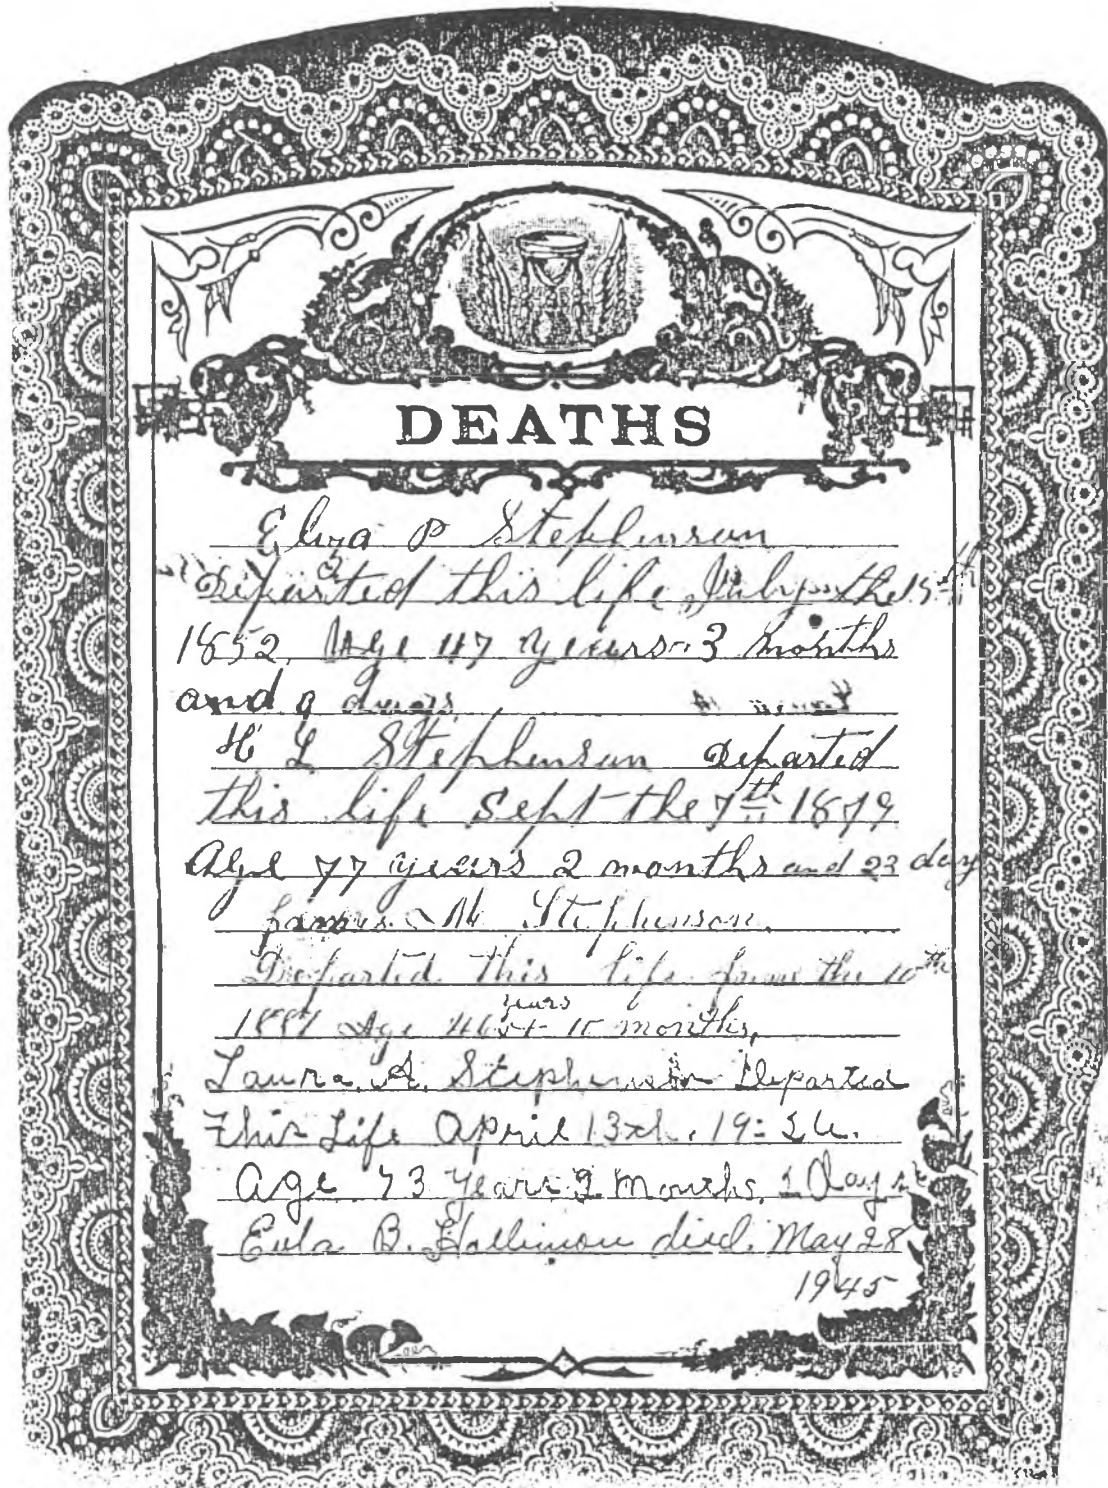 DEATHS
Eliza P Stephenson
Departed this life, July the 15th
1852, Age 47 years 3 months
and 9 days
H L Stephenson Departed
this life Sept the 7th 1879
Age 77 years 2 months and 23 days
James M Stephenson.
Departed this life June the 10th
Age 46 years 10 months,
Laura A. Stephenson Departed
This Life April 13th. 19
Age 73 Years 9 Months, 1 Days
Eula B. Hallimon died. May 28
1945